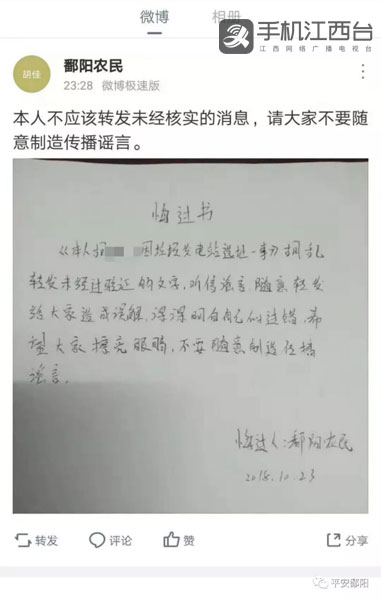 微博
相册
手机江西台
江西网络广播电视台
胡佳
鄱阳农民
23:28 微博极速版
本人不应该转发未经核实的消息，请大家不要随
意制造传播谣言。
悔过书
《本人 因垃圾发电站选址一事》胡乱
转发未经过验证的文字，听信谣言随意转发
给大家造成误解，深深明白自己的过错，希
望大家擦亮眼睛，不要随意制造传播
谣言。
悔过人：鄱阳农民
2018.10.23
转发
评论
赞
分享
平安鄱阳